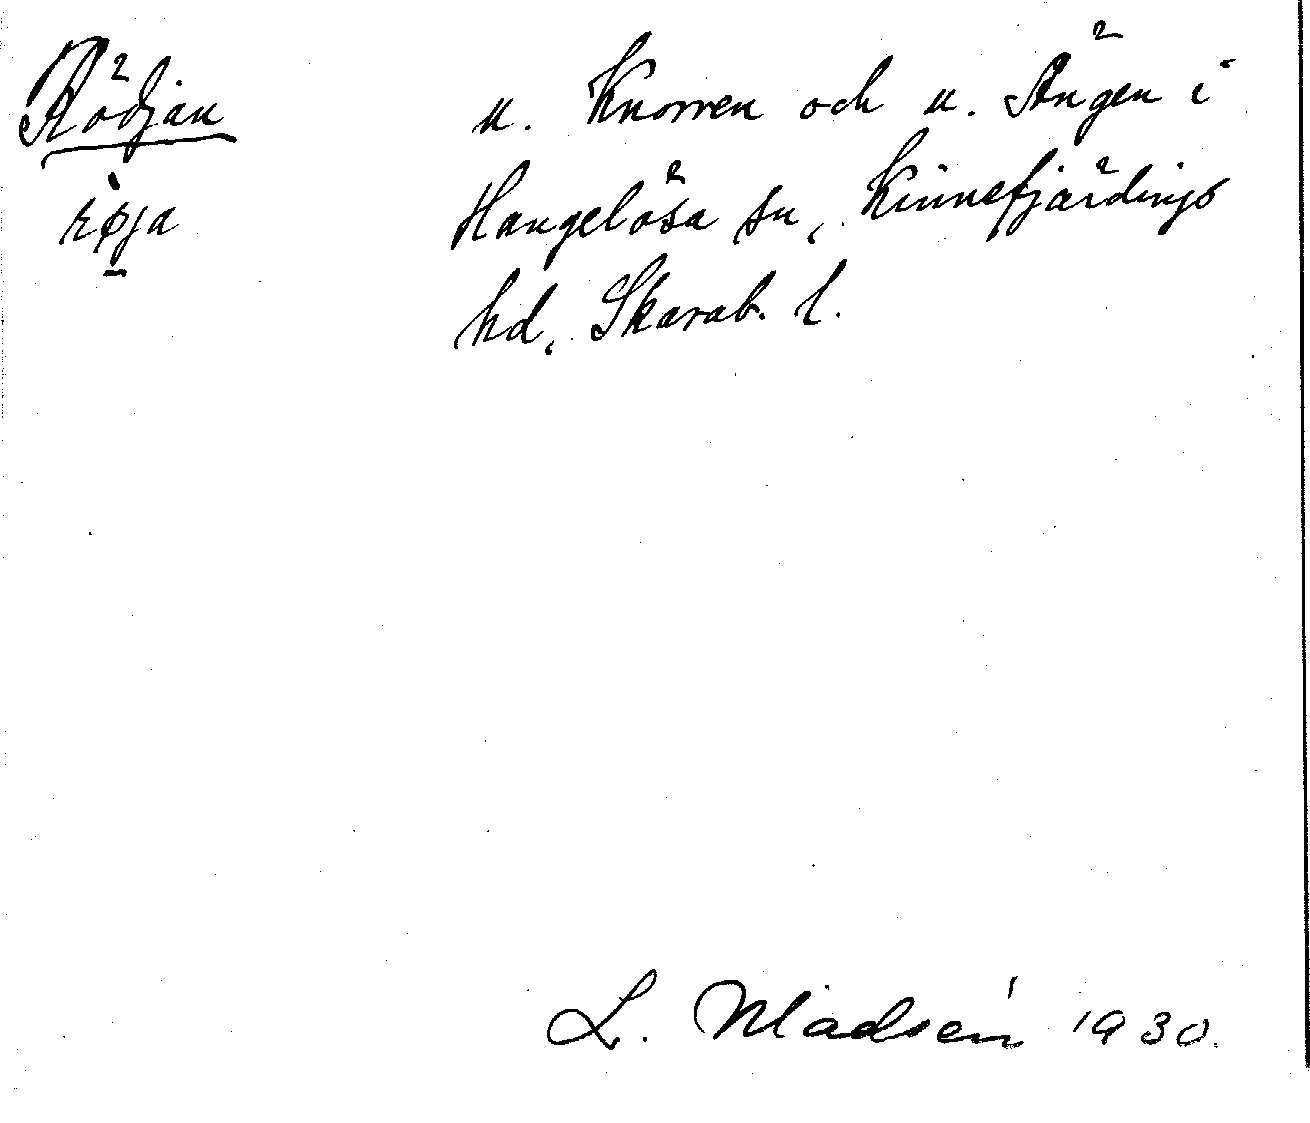 Rödjan
u. Knorren och u. Ängen i
Hangelösa sn, Kinnefjärdings
hd, Skarab. l.
rø̀ja
L. Madsén 1930.